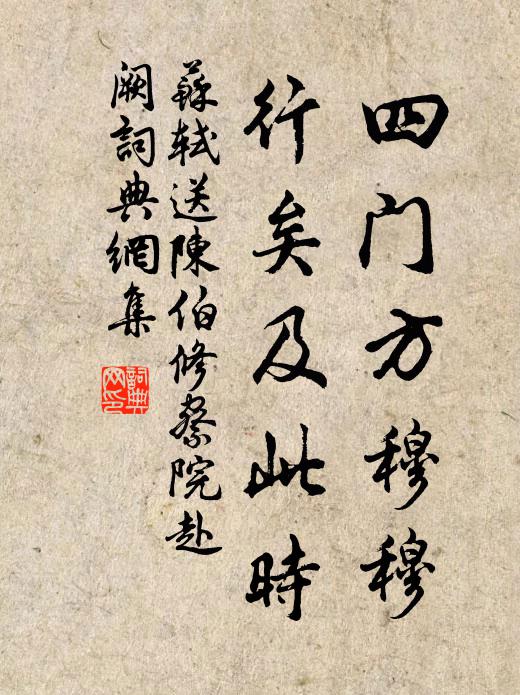 四门方穆穆
行矣及此時
蘇軾送陳伯修察院赴
闕詞典網集
詞典
网印